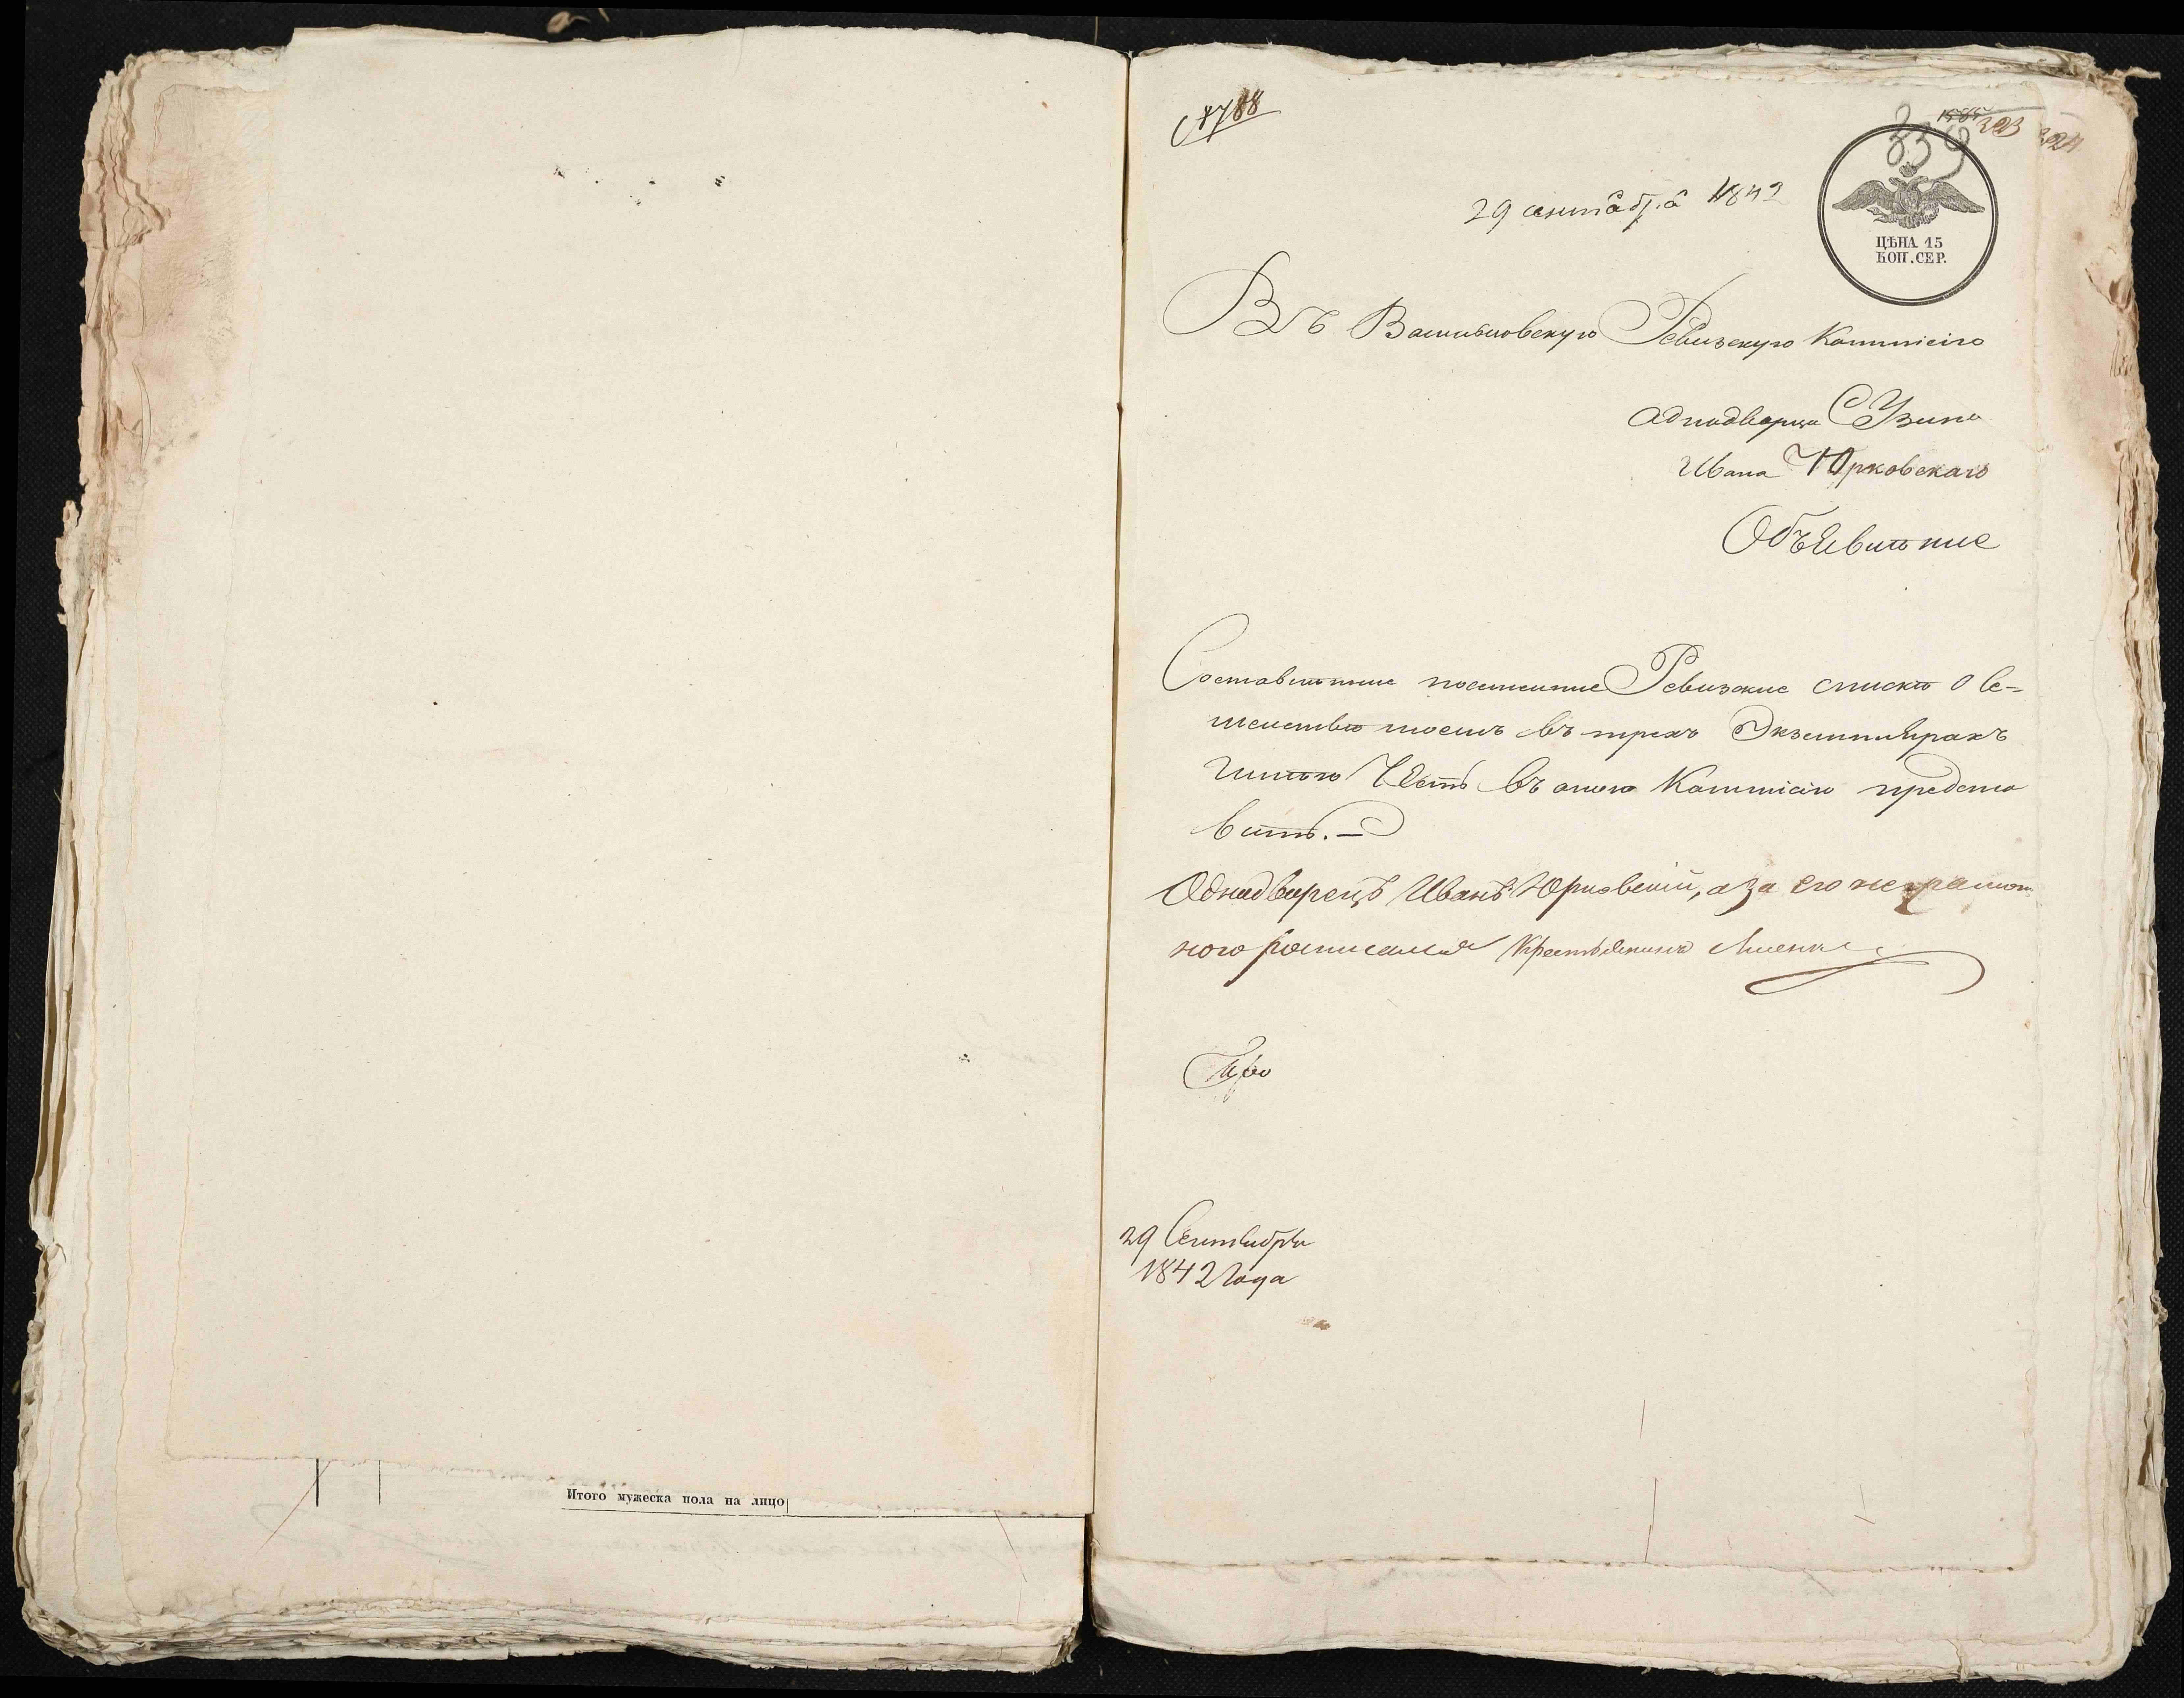 Итого мужеска пола на лицо
1788
323
29 сентября 1842
ЦѢНА 15
КОП. СЕР.
Въ Васильковскую Ревизскую Коммисію
аднодворца Узина
Ивана Юрковскаго
Объявленіе
Составленные Ревизские списки о се-
мействе моемъ въ трехъ Экземплярахъ
имѣю Честь въ оную Коммисію предста
вить.—
Однадворецъ Иванъ Юрковскій, а за его неграмот
ного росписался Крестьянинъ
29 Сентября
1842 Года